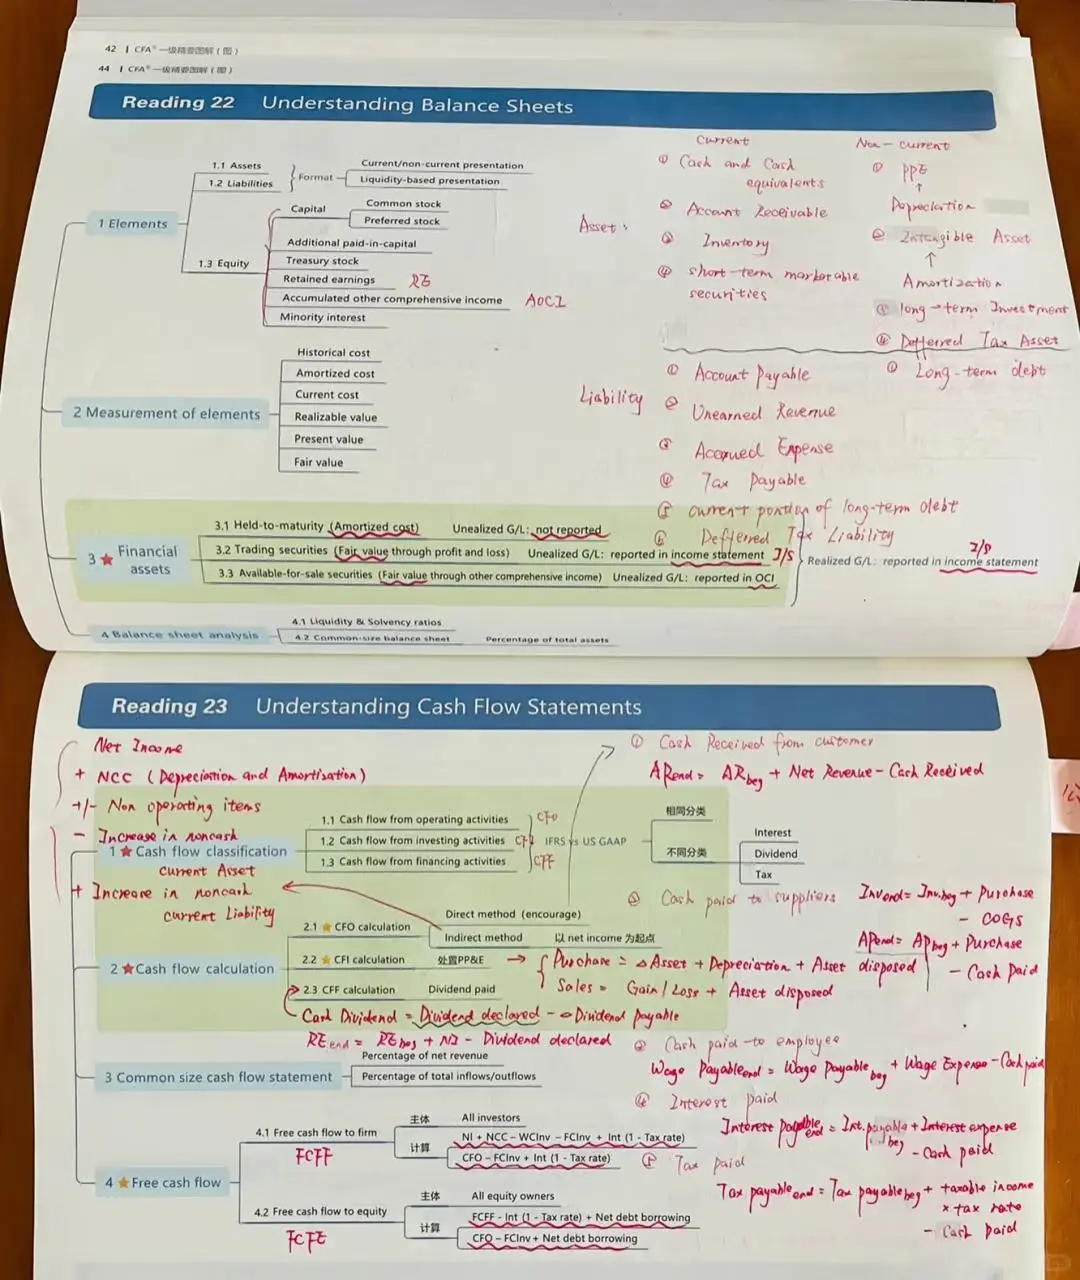 42 | CFA® 一级精要图解(图)
44 | CFA® 一级精要图解(图)
Reading 22 Understanding Balance Sheets
1 Elements
1.1 Assets
1.2 Liabilities
Format
Current/non-current presentation
Liquidity-based presentation
1.3 Equity
Capital
Common stock
Preferred stock
Additional paid-in-capital
Treasury stock
Retained earnings RE
Accumulated other comprehensive income AOCI
Minority interest
2 Measurement of elements
Historical cost
Amortized cost
Current cost
Realizable value
Present value
Fair value
Asset:
Current
① Cash and Cash
equivalents
② Account Receivable
③ Inventory
④ short-term marketable
securities
Non-current
① PPE
↑
Depreciation
② Intangible Asset
↑
Amortization
③ long-term Investment
④ Defferred Tax Asset
Liability
① Account Payable
② Unearned Revenue
③ Accrued Expense
④ Tax Payable
⑤ current portion of long-term debt
⑥ Defferred Tax Liability
① Long-term debt
3 ★ Financial
assets
3.1 Held-to-maturity (Amortized cost) Unealized G/L: not reported
3.2 Trading securities (Fair value through profit and loss) Unealized G/L: reported in income statement I/S
3.3 Available-for-sale securities (Fair value through other comprehensive income) Unealized G/L: reported in OCI
I/S
Realized G/L: reported in income statement
4 Balance sheet analysis
4.1 Liquidity & Solvency ratios
4.2 Common-size balance sheet Percentage of total assets
Reading 23 Understanding Cash Flow Statements
Net Income
+ NCC (Depreciation and Amortization)
+/- Non operating items
- Increase in noncash
current Asset
+ Increase in noncash
current Liability
1 ★ Cash flow classification
1.1 Cash flow from operating activities CFO
1.2 Cash flow from investing activities CFI
1.3 Cash flow from financing activities CFF
IFRS vs US GAAP
相同分类
不同分类
Interest
Dividend
Tax
① Cash Received from customer
ARend = ARbeg + Net Revenue - Cash Received
② Cash paid to suppliers
Invend = Invbeg + Purchase
- COGS
APend = APbeg + Purchase
- Cash Paid
2 ★ Cash flow calculation
2.1 ★ CFO calculation
Direct method (encourage)
Indirect method 以 net income 为起点
2.2 ★ CFI calculation 处置PP&E →
Purchase = △Asset + Depreciation + Asset disposed
Sales = Gain/Loss + Asset disposed
2.3 CFF calculation Dividend paid
Cash Dividend = Dividend declared - △Dividend payable
REend = REbeg + NI - Dividend declared
③ Cash paid to employee
Wage Payableend = Wage Payablebeg + Wage Expense - Cash paid
④ Interest paid
Interest payableend = Int.payablebeg + Interest expense
- Cash paid
⑤ Tax paid
Tax payableend = Tax payablebeg + taxable income
× tax rate
- Cash paid
3 Common size cash flow statement
Percentage of net revenue
Percentage of total inflows/outflows
4 ★ Free cash flow
4.1 Free cash flow to firm
FCFF
主体 All investors
计算
NI + NCC – WCInv – FCInv + Int (1 - Tax rate)
CFO – FCInv + Int (1 - Tax rate)
4.2 Free cash flow to equity
FCFE
主体 All equity owners
计算
FCFF - Int (1 - Tax rate) + Net debt borrowing
CFO – FCInv + Net debt borrowing